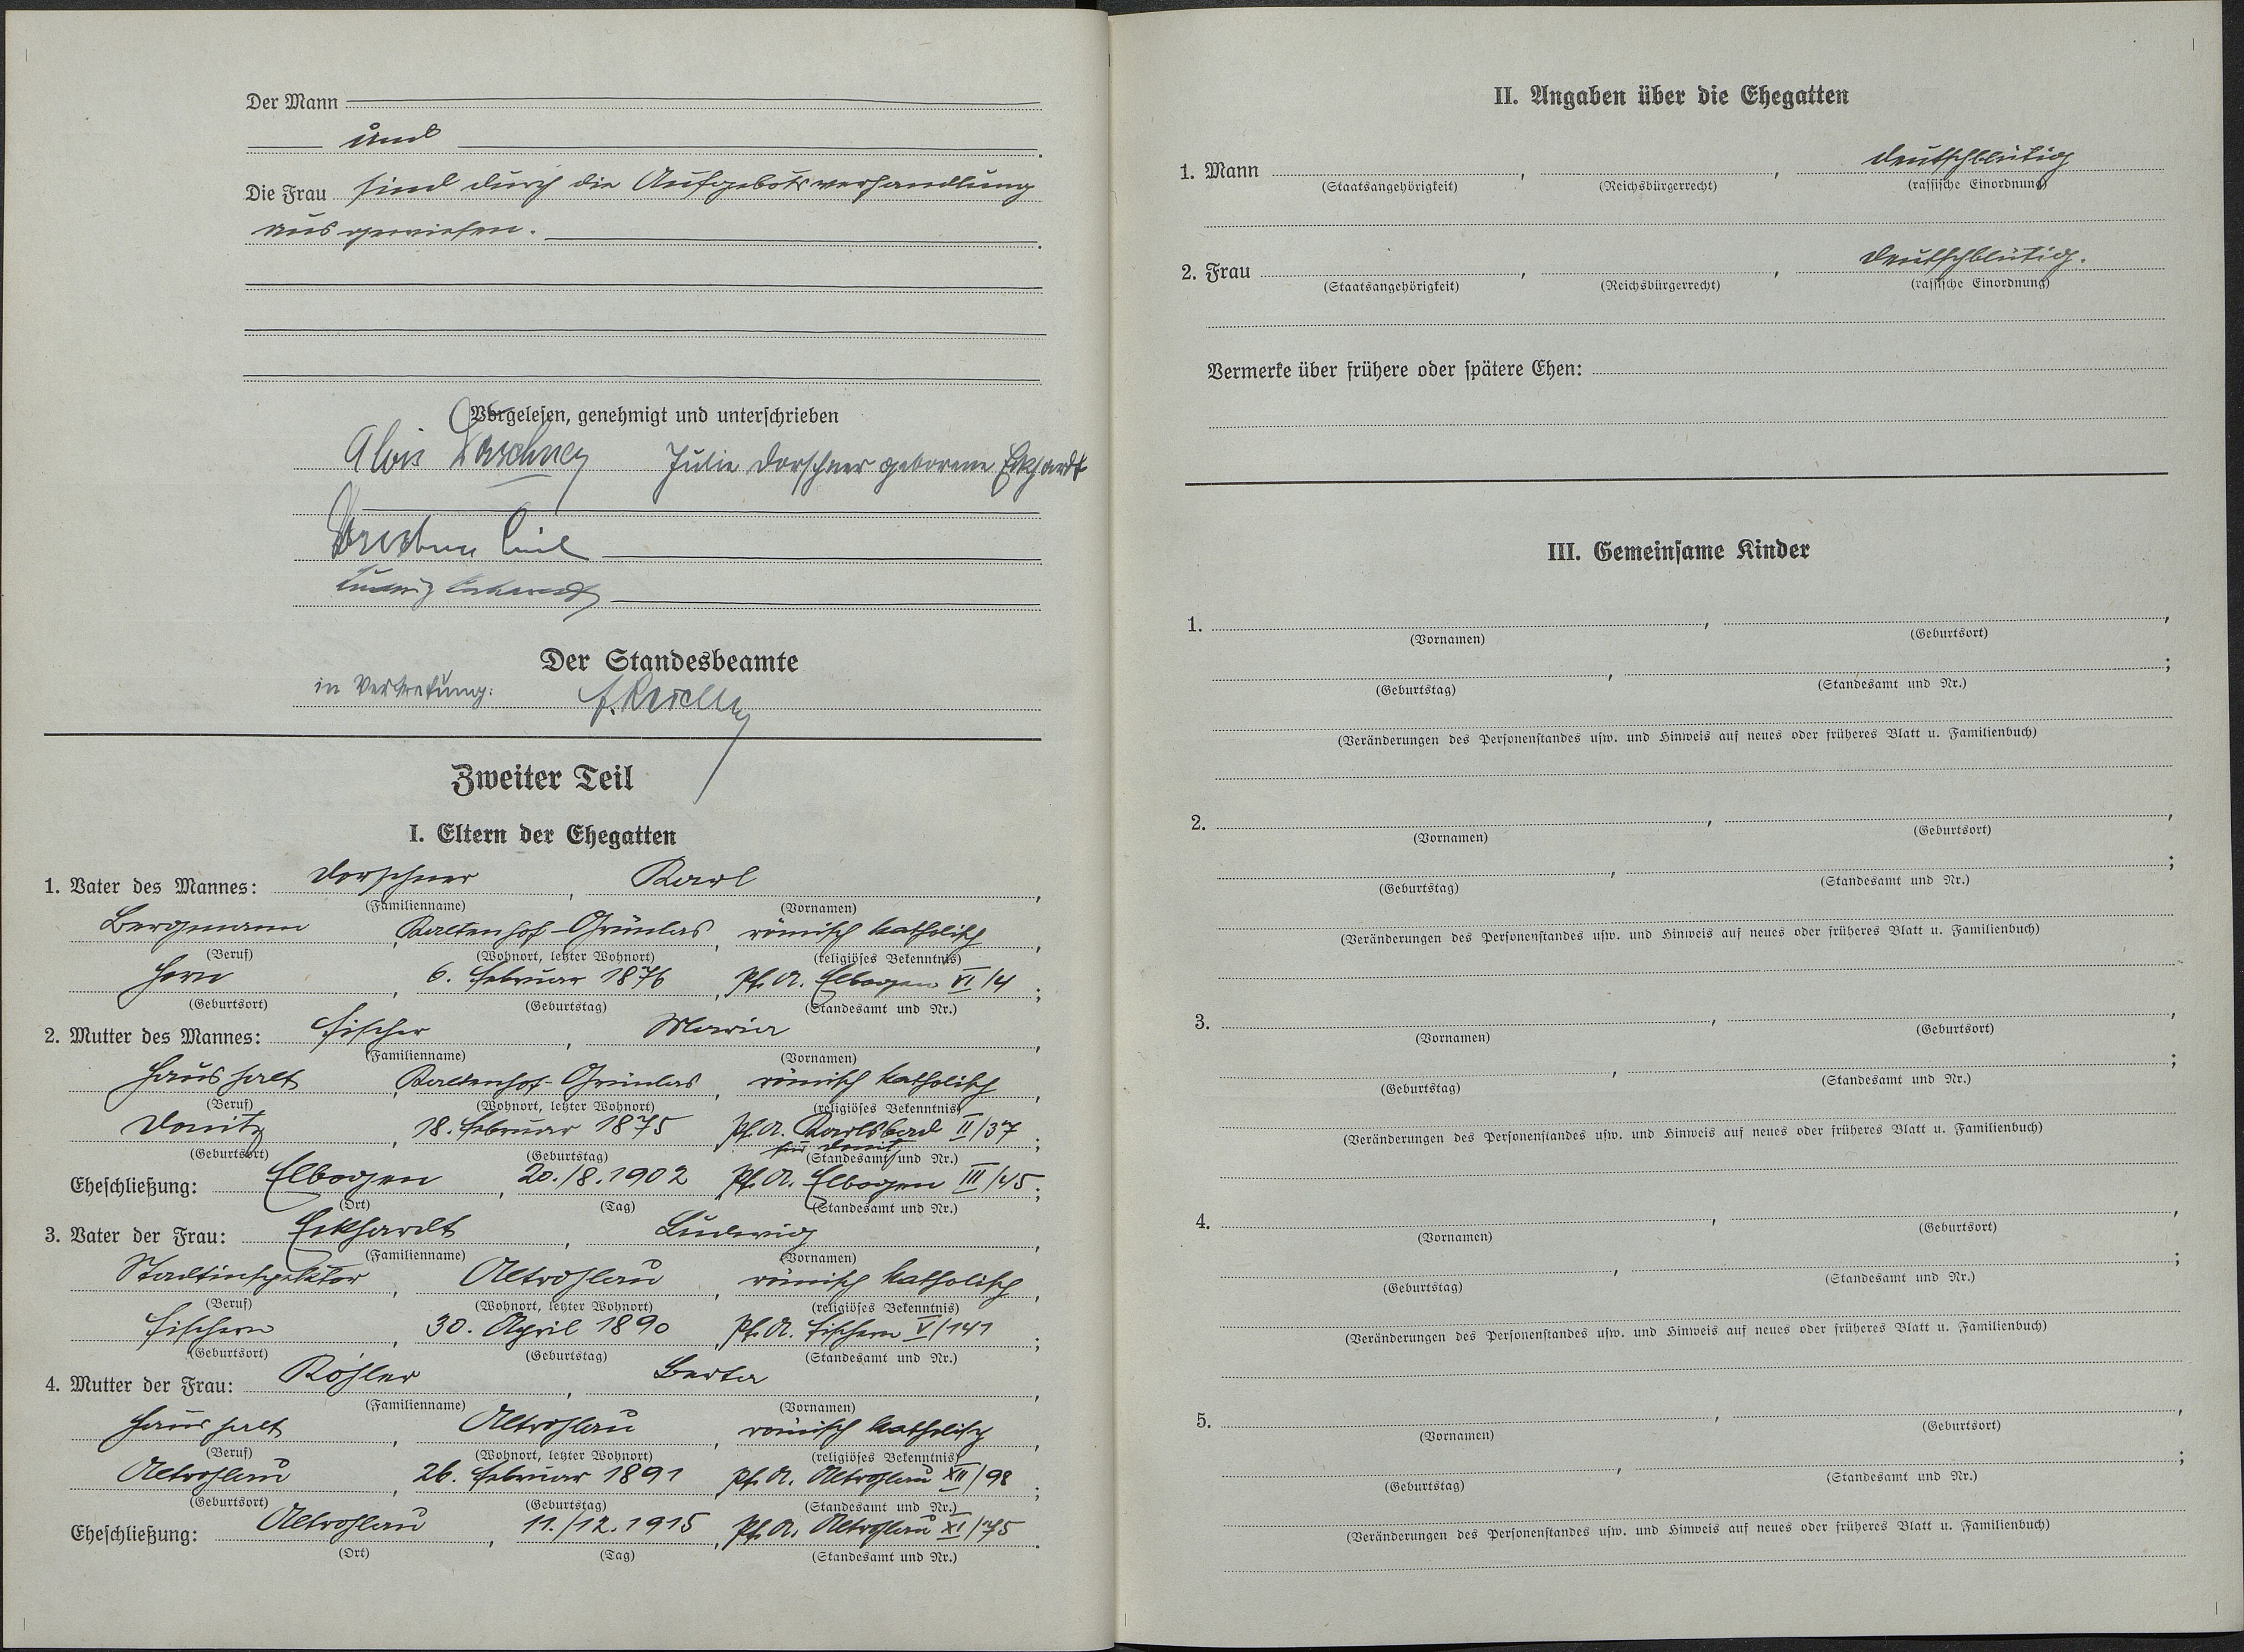 Der Mann
und
Die Frau sind durch die Aufgebotsverhandlung
ausgewiesen.
Vorgelesen, genehmigt und unterschrieben
Alois Dorschner Julie Dorschner geborene Eckhardt
Ludwig Eckhardt
Der Standesbeamte
in Vertretung:
Zweiter Teil
I. Eltern der Ehegatten
1. Vater des Mannes: Dorschner, Karl,
(Familienname) (Vornamen)
Bergmann, Kaltenhof-Grünlas, römisch katholisch,
(Beruf) (Wohnort, letzter Wohnort) (religiöses Bekenntnis)
Horn, 6. Februar 1876, Pf. A. Elbogen VI/4;
(Geburtsort) (Geburtstag) (Standesamt und Nr.)
2. Mutter des Mannes: Fischer, Maria,
(Familienname) (Vornamen)
Haushalt, Kaltenhof-Grünlas, römisch katholisch,
(Beruf) (Wohnort, letzter Wohnort) (religiöses Bekenntnis)
Donitz, 18. Februar 1875, Pf. A. Karlsbad II/37;
für Donitz
(Geburtsort) (Geburtstag) (Standesamt und Nr.)
Eheschließung: Elbogen, 20./8.1902, Pf. A. Elbogen III/45;
(Ort) (Tag) (Standesamt und Nr.)
3. Vater der Frau: Eckhardt, Ludwig,
(Familienname) (Vornamen)
Stadtinspektor, Altrohlau, römisch katholisch,
(Beruf) (Wohnort, letzter Wohnort) (religiöses Bekenntnis)
Fischern, 30. April 1890, Pf. A. Fischern V/141;
(Geburtsort) (Geburtstag) (Standesamt und Nr.)
4. Mutter der Frau: Köhler, Berta,
(Familienname) (Vornamen)
Haushalt, Altrohlau, römisch katholisch,
(Beruf) (Wohnort, letzter Wohnort) (religiöses Bekenntnis)
Altrohlau, 26. Februar 1891, Pf. A. Altrohlau XII/98;
(Geburtsort) (Geburtstag) (Standesamt und Nr.)
Eheschließung: Altrohlau, 11./12.1915, Pf. A. Altrohlau XI/75.
(Ort) (Tag) (Standesamt und Nr.)
II. Angaben über die Ehegatten
1. Mann , , deutschblütig
(Staatsangehörigkeit) (Reichsbürgerrecht) (rassische Einordnung)
2. Frau , , deutschblütig.
(Staatsangehörigkeit) (Reichsbürgerrecht) (rassische Einordnung)
Vermerke über frühere oder spätere Ehen:
III. Gemeinsame Kinder
1. , ,
(Vornamen) (Geburtsort)
, ;
(Geburtstag) (Standesamt und Nr.)
(Veränderungen des Personenstandes usw. und Hinweis auf neues oder früheres Blatt u. Familienbuch)
2. , ,
(Vornamen) (Geburtsort)
, ;
(Geburtstag) (Standesamt und Nr.)
(Veränderungen des Personenstandes usw. und Hinweis auf neues oder früheres Blatt u. Familienbuch)
3. , ,
(Vornamen) (Geburtsort)
, ;
(Geburtstag) (Standesamt und Nr.)
(Veränderungen des Personenstandes usw. und Hinweis auf neues oder früheres Blatt u. Familienbuch)
4. , ,
(Vornamen) (Geburtsort)
, ;
(Geburtstag) (Standesamt und Nr.)
(Veränderungen des Personenstandes usw. und Hinweis auf neues oder früheres Blatt u. Familienbuch)
5. , ,
(Vornamen) (Geburtsort)
, ;
(Geburtstag) (Standesamt und Nr.)
(Veränderungen des Personenstandes usw. und Hinweis auf neues oder früheres Blatt u. Familienbuch)